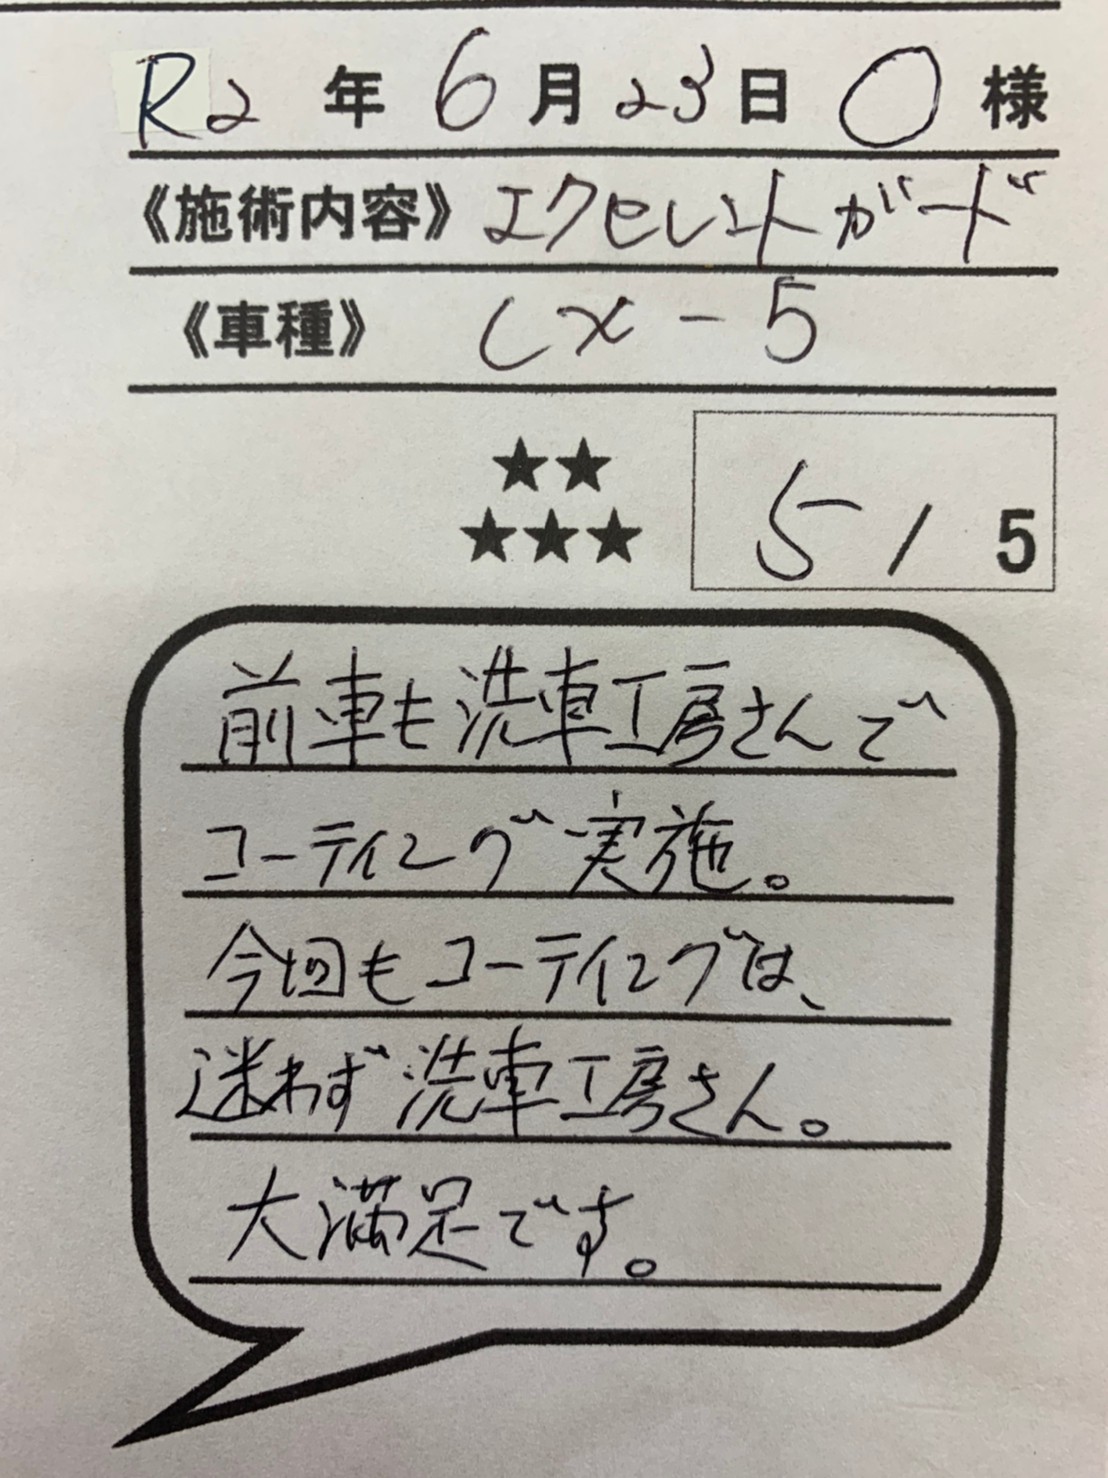 R2年6月23日 O様
《施術内容》エクセレントガード
《車種》CX-5
★★
★★★
5/5
前車も洗車工房さんで
コーティング実施。
今回もコーティングは、
迷わず洗車工房さん。
大満足です。